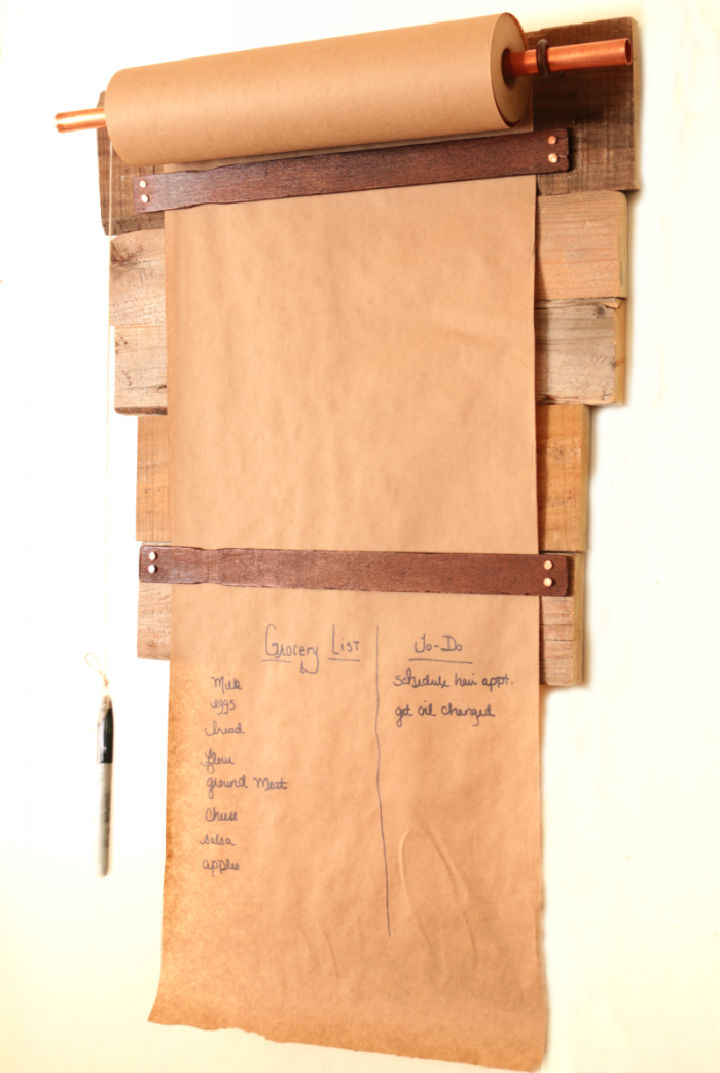 Grocery List
Milk
eggs
bread
flour
ground meat
cheese
salsa
apples
To-Do
schedule hair appt.
get oil changed